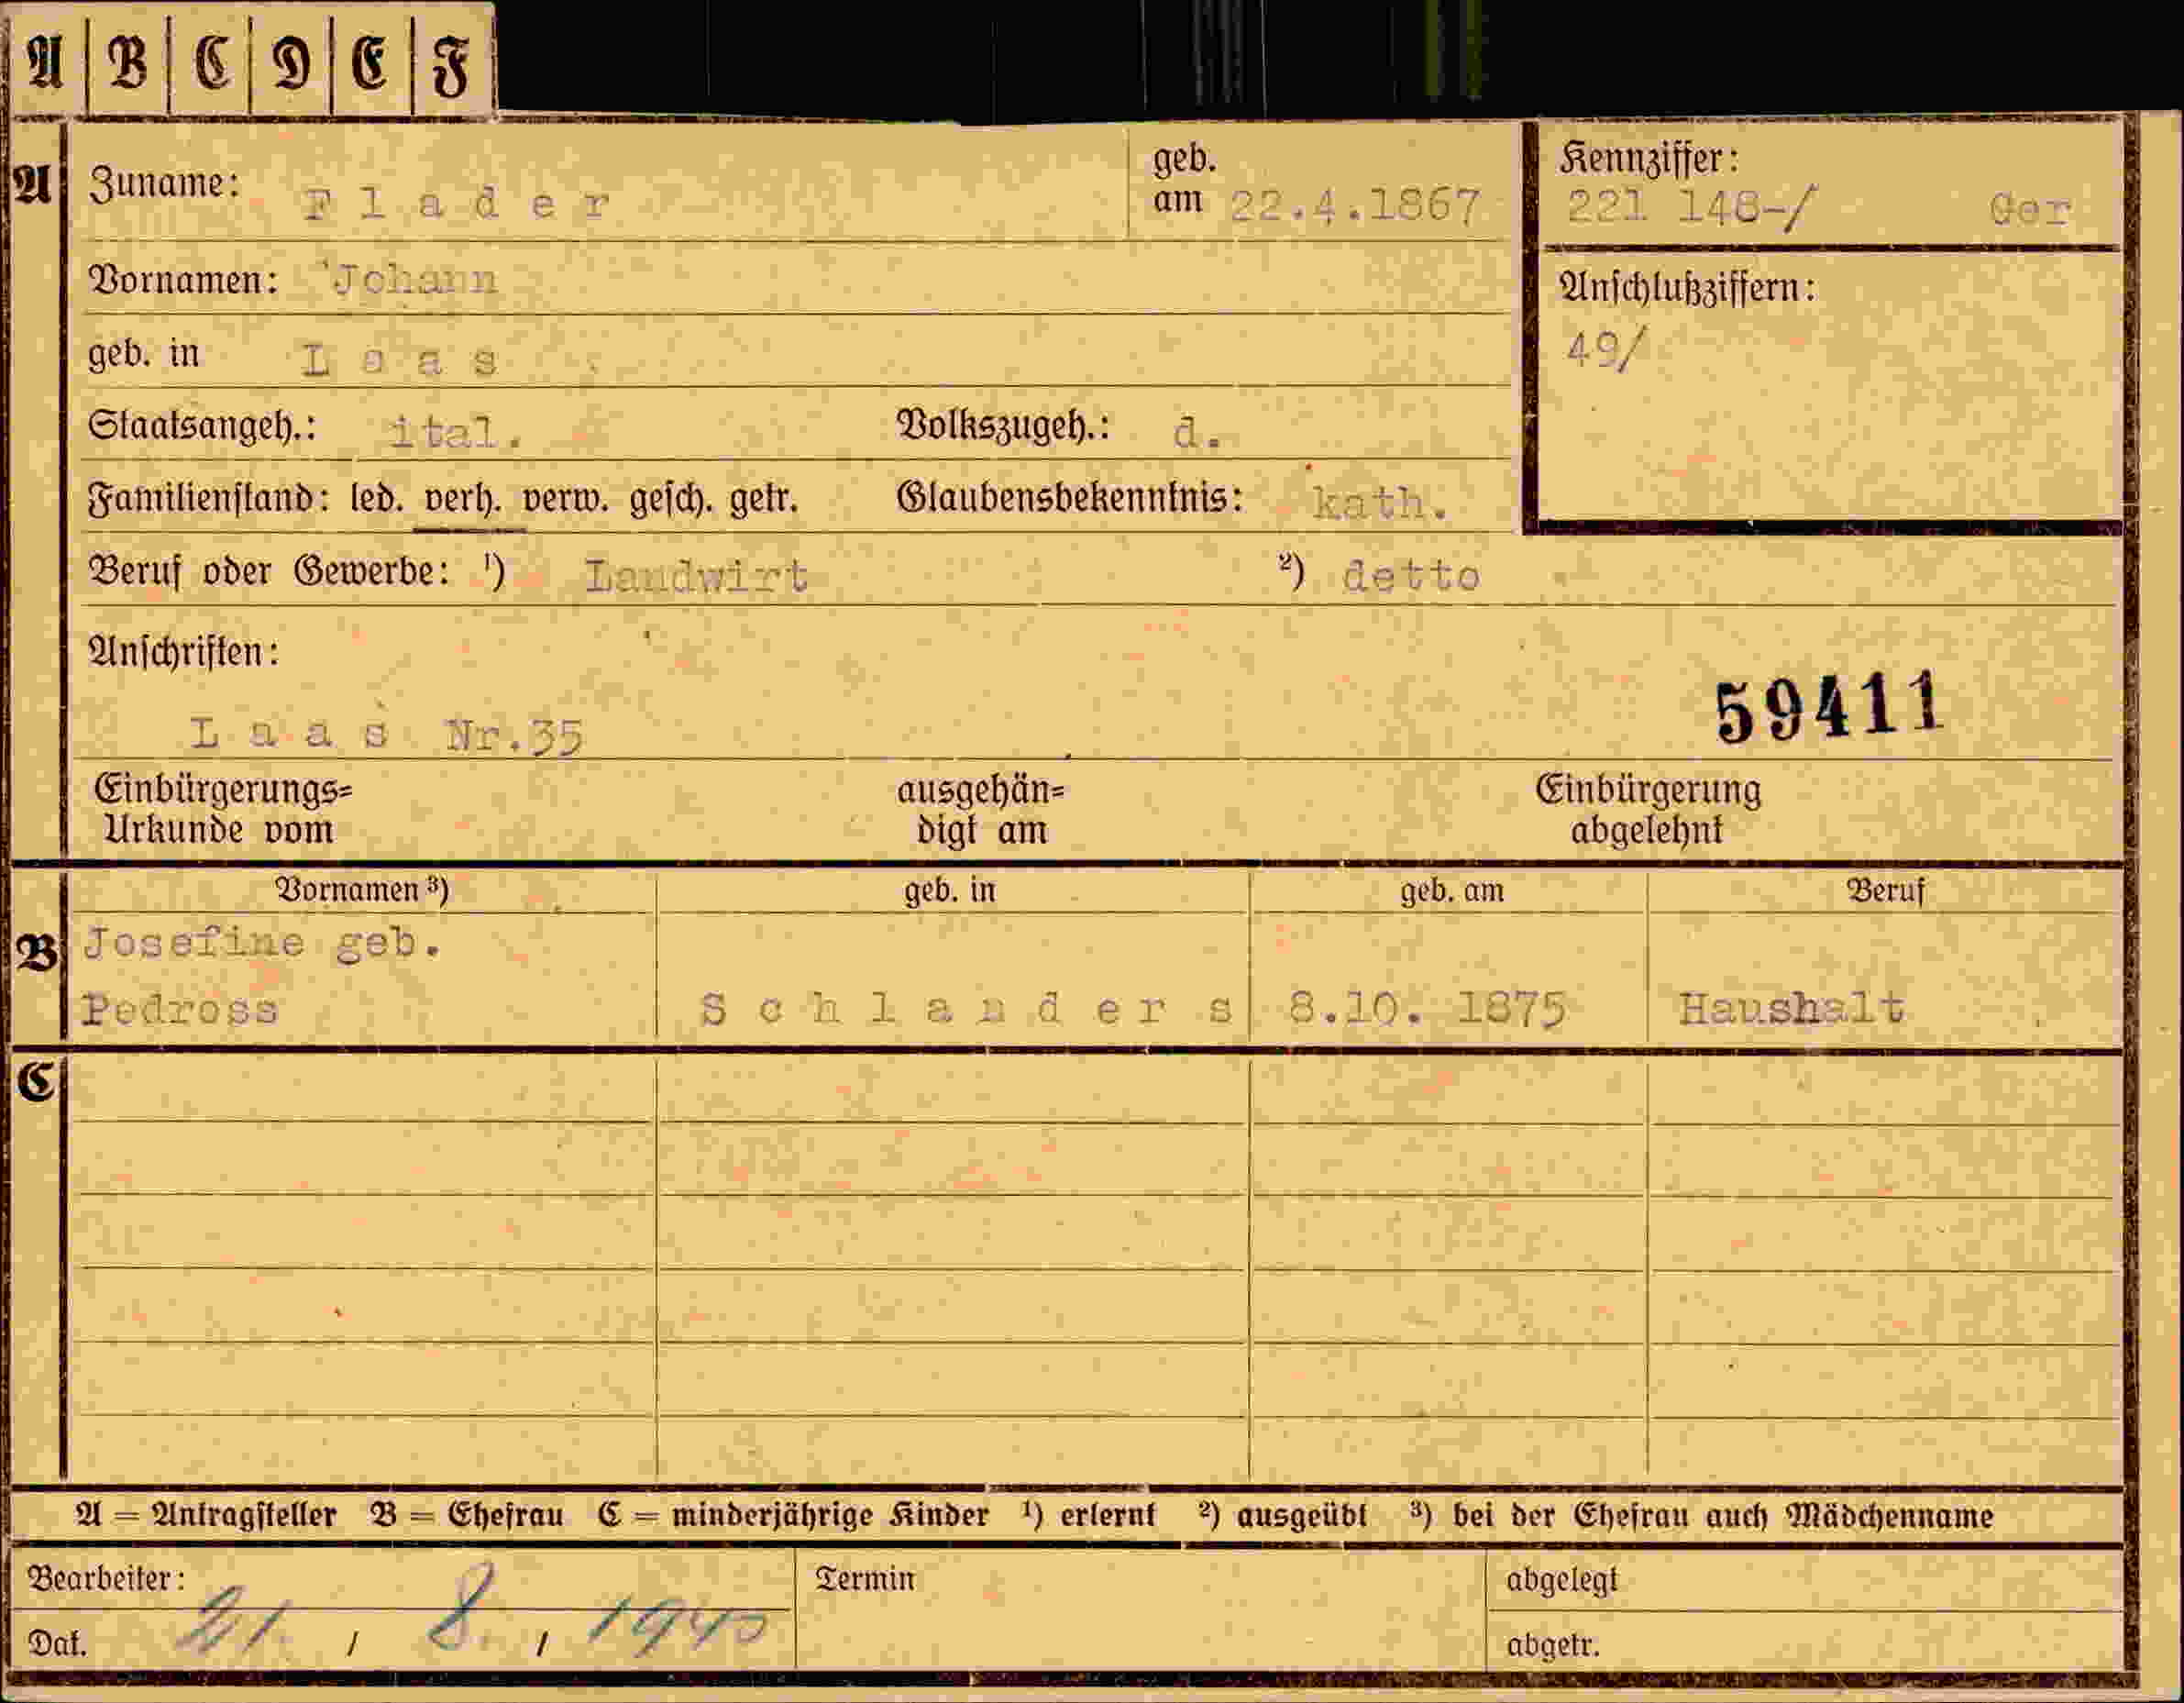 A B C D E F
A Zuname: Flader geb. am 22.4.1867
Kennziffer: 221 148-/ Ger
Vornamen: Johann
Anschlußziffern: 49/
geb. in Laas
Staatsangeh.: ital. Volkszugeh.: d.
Familienstand: led. verh. verw. gesch. getr. Glaubensbekenntnis: kath.
Beruf oder Gewerbe: ¹) Landwirt ²) detto
Anschriften:
59411
Laas Nr.35
Einbürgerungs= ausgehän= Einbürgerung
Urkunde vom digt am abgelehnt
Vornamen ³) geb. in geb. am Beruf
B Josefine geb.
Pedross Schlanders 8.10. 1875 Haushalt
C
A = Antragsteller B = Ehefrau C = minderjährige Kinder ¹) erlernt ²) ausgeübt ³) bei der Ehefrau auch Mädchenname
Bearbeiter: Termin abgelegt
Dat. 21. / 8. / 1940 abgetr.